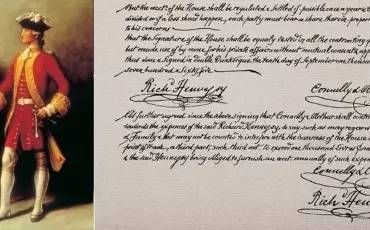 But the rest of the House shall be regulated & Settled if possible once a year &
divided or if a loss shou'd happen, each party must bear a share therein, propor
to his concerns
That the Signature of the House shall be equally vested in all the contracting
but made use of by none for his private affairs without mutual consent
thus done & Signed in double Dunkerque the Tenth day of September one thousand
seven hundred & Sixty five
Rich Hennessy
Connelly &
It's further agreed since the above signing that Connelly & Arthur shall contri
towards the expences of the said Richard Hennessy, in any such as may regard
& Family & that may not be counted to interfere with the business of the House
point of trade, a third part, such third not to exceed one thousand Livres
& the said Hennessy being obliged to furnish an acct. annually of such expen
Connelly &
Rich Hennessy